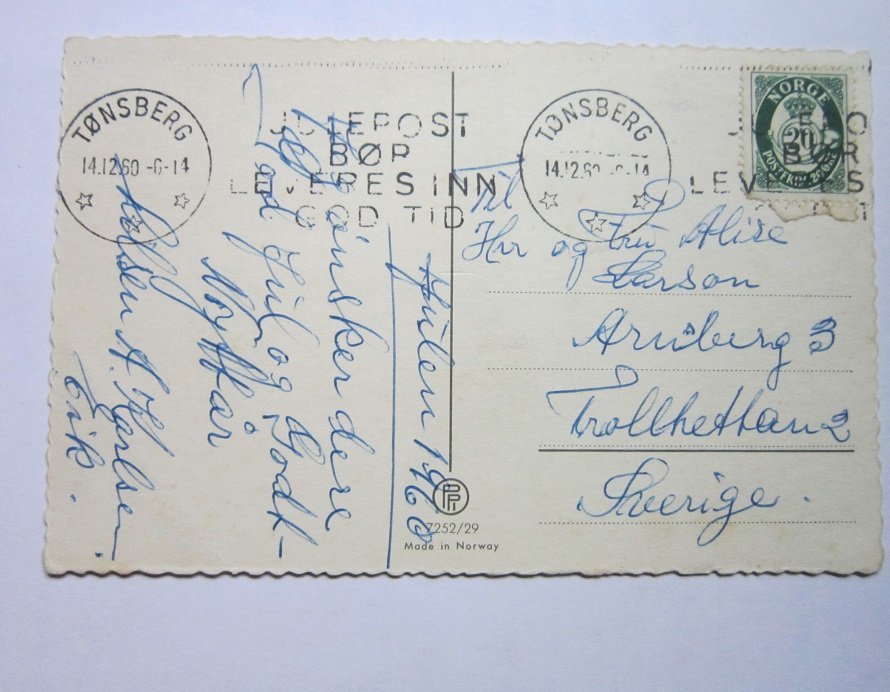 TØNSBERG
14.12.60 -6-14
JULEPOST
BØR
LEVERES INN
GOD TID
TØNSBERG
14.12.60 -6-14
NORGE
20
POSTFRIM.
LEVE ES
BØR
Julen 1960
ønsker dere
God Jul og Godt
Nyttår
Hilsen A. Karlsen
Erik.
Til
Hrr og Fru Alise
Larson
3
Trollhettan 2
Sverige.
PP
7252/29
Made in Norway